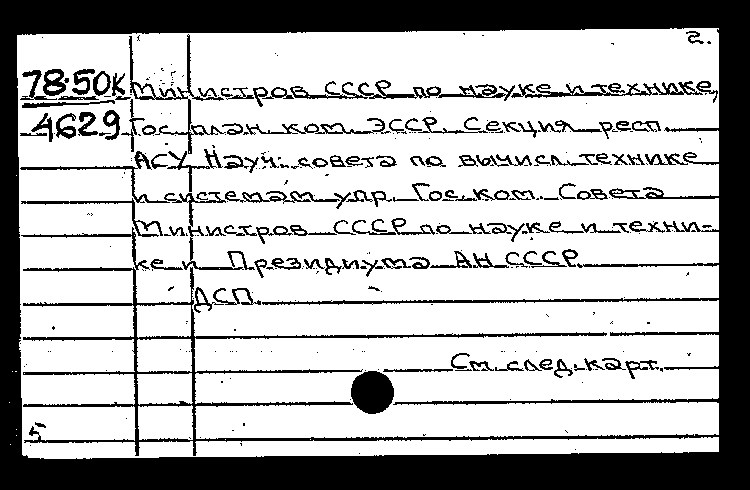 2.
78-50к Министров СССР по науке и технике,
4629 Гос. план. ком. ЭССР. Секция респ.
АСУ Науч. совета по вычисл. технике
и системам упр. Гос. ком. Совета
Министров СССР по науке и техни-
ке и Президиума АН СССР.
ДСП.
См. след. карт.
5